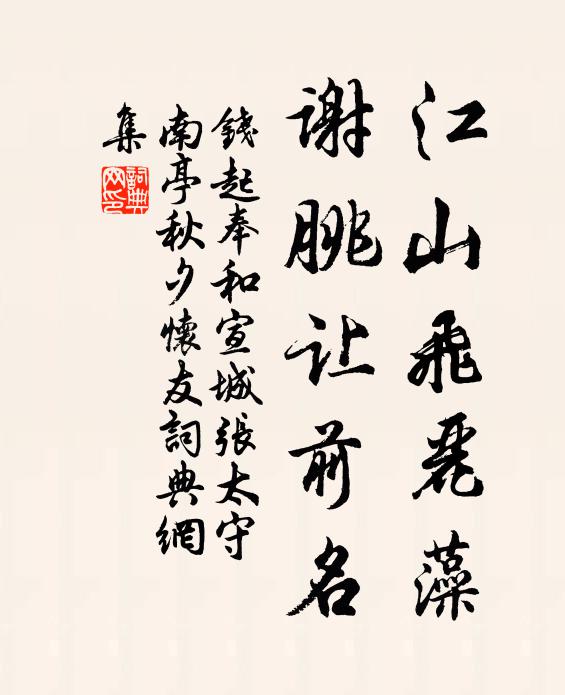 江山飛麗藻
謝朓让前名
錢起奉和宣城張太守
南亭秋夕懷友詞典網
集
詞典网印